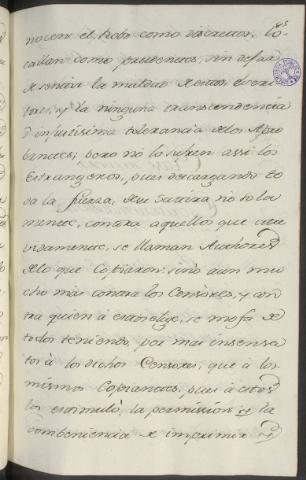 nocen el robo como discretos, lo
callan como prudentes, sin dejar
de reñir la maldad de estos escri
tores, y la ninguna transcendencia
è injustisima tolerancia de los Apro
bantes; pero no lo sufren assi los
Estrangeros, pues descargando to
da la fuerza, de su satira no solo
mente, contra aquellos que atre
vidamente, se llaman Authores
de lo que Copiaron, sino aun mu
cho mas contra los Censores, y con
tra quien à estos elije, se mofa de
todos teniendo, por mas insensa
tos à los dichos Censores, que à los
mismos Copiantes, pues à estos
los estimulò, la permission y la
combeniencia de imprimir